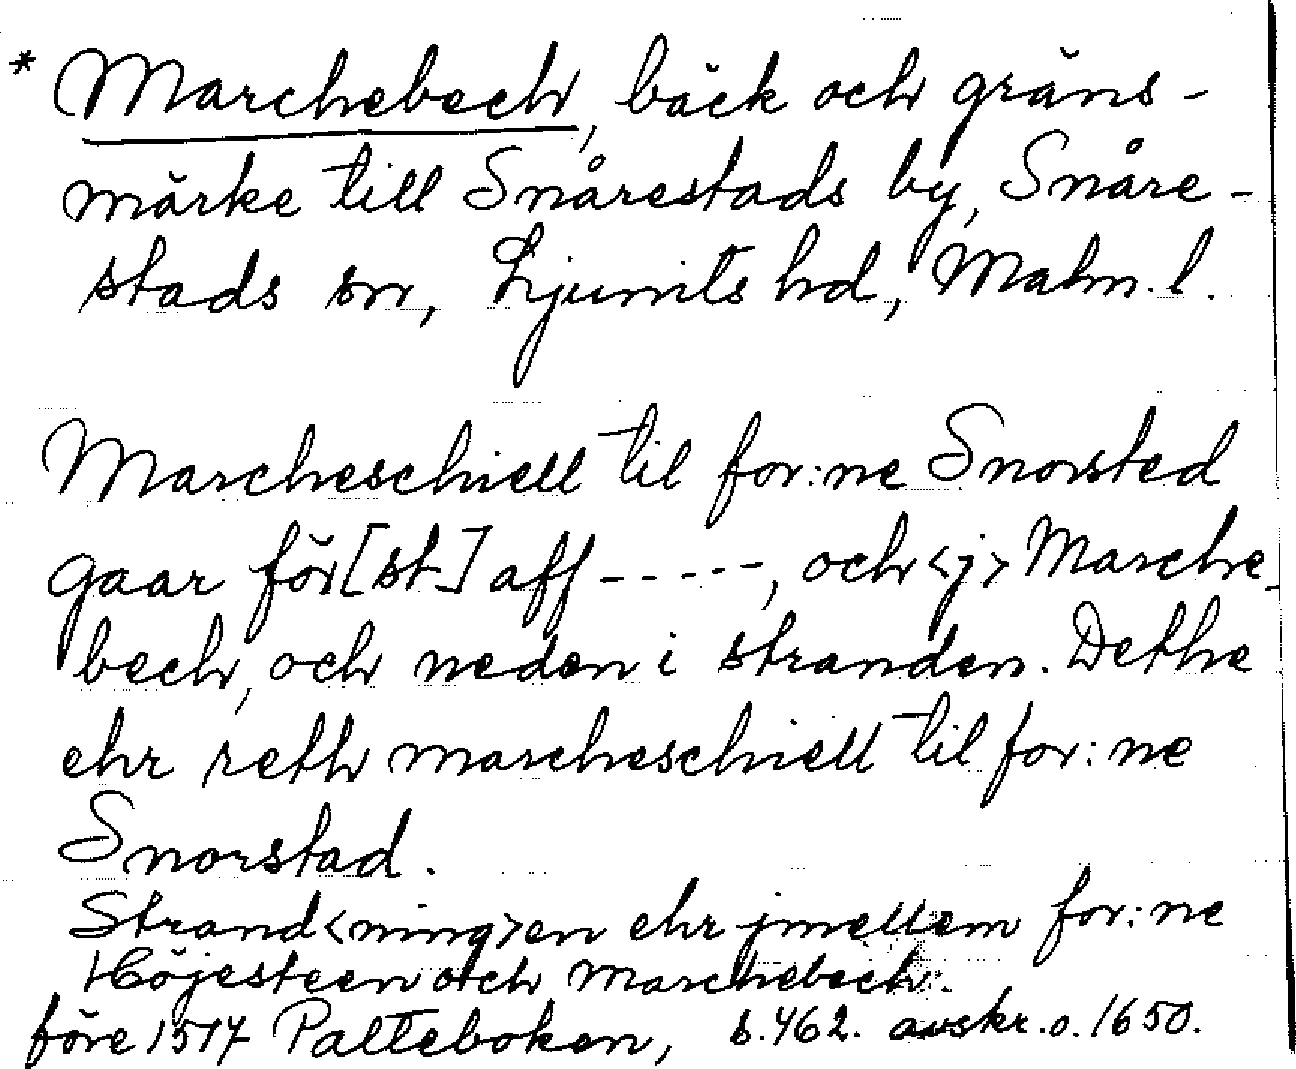 * Marchebech, bäck och gräns-
märke till Snårestads by, Snåre-
stads sn, Ljunits hd, Malm. l.
Marcheschiell til for:ne Snorsted
gaar för[st] aff -----, och <j> Marche-
bech, och neden i stranden. Dethe
ehr reth marcheschiell til for:ne
Snorstad.
Strand<ning>en ehr jmellem for:ne
Höjesteen och Marchebech.
före 1517 Palteboken, s. 462. avskr. o. 1650.